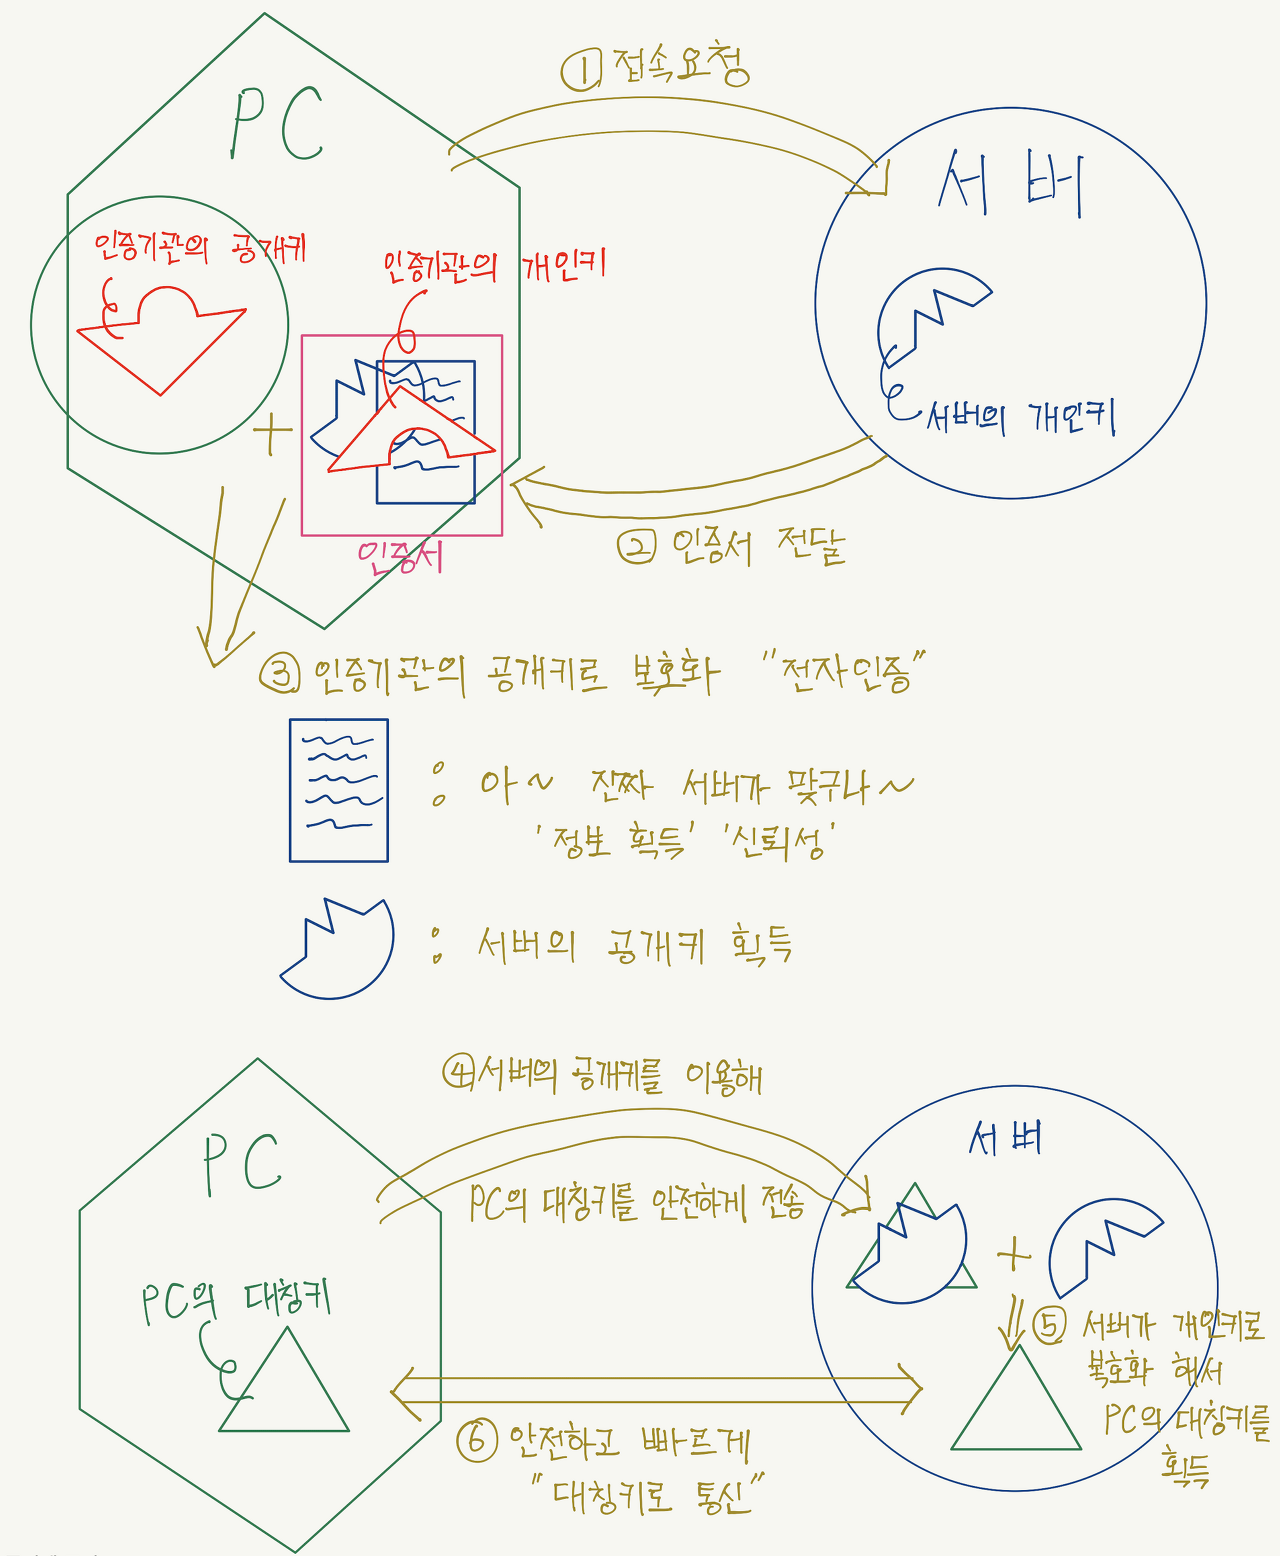 ① 접속요청
PC
서버
인증기관의 공개키
인증기관의 개인키
+
서버의 개인키
인증서
② 인증서 전달
③ 인증기관의 공개키로 복호화 "전자인증"
: 아~ 진짜 서버가 맞구나~
'정보 획득' '신뢰성'
: 서버의 공개키 획득
④ 서버의 공개키를 이용해
PC의 대칭키를 안전하게 전송
PC
서버
PC의 대칭키
+
⑤ 서버가 개인키로
복호화 해서
PC의 대칭키를
획득
⑥ 안전하고 빠르게
"대칭키로 통신"